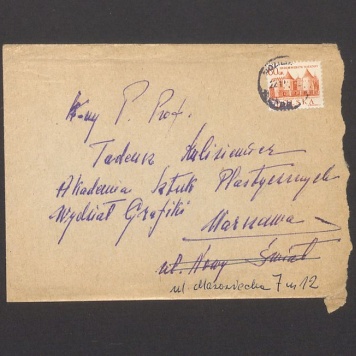 Wny P. Prof.
Tadeusz Kulisiewicz
Akademia Sztuk Plastycznych
Wydział Grafiki
Warszawa
ul. Nowy Świat
ul. Mazowiecka 7 m 12